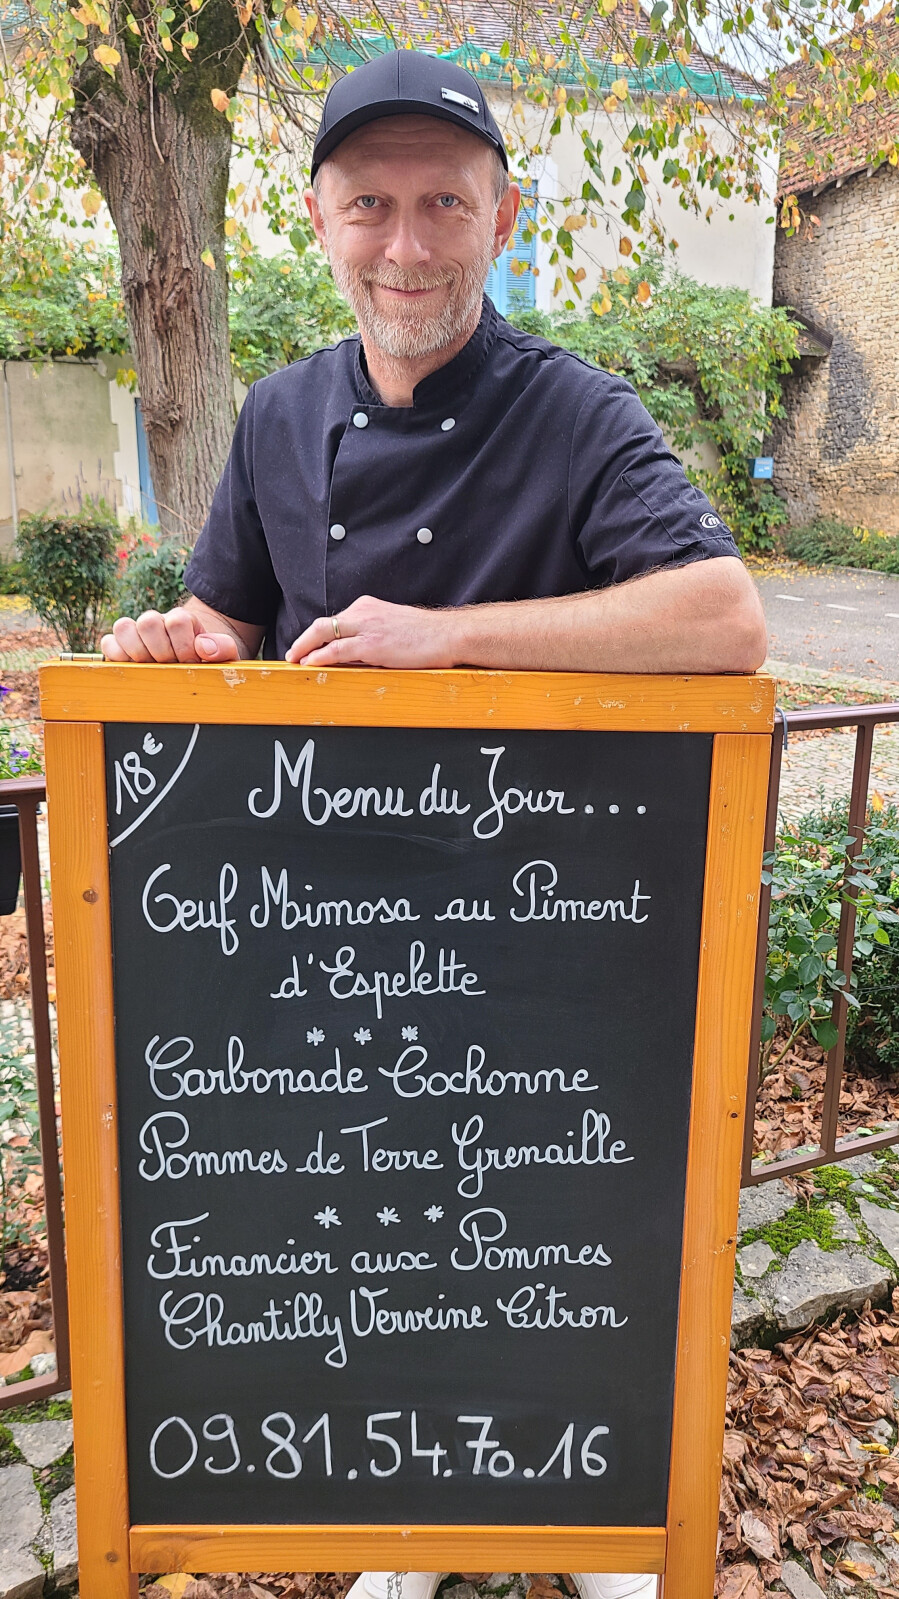 18€
Menu du Jour...
Oeuf Mimosa au Piment
d'Espelette
* * *
Carbonade Cochonne
Pommes de Terre Grenaille
* * *
Financier aux Pommes
Chantilly Verveine Citron
09.81.54.70.16